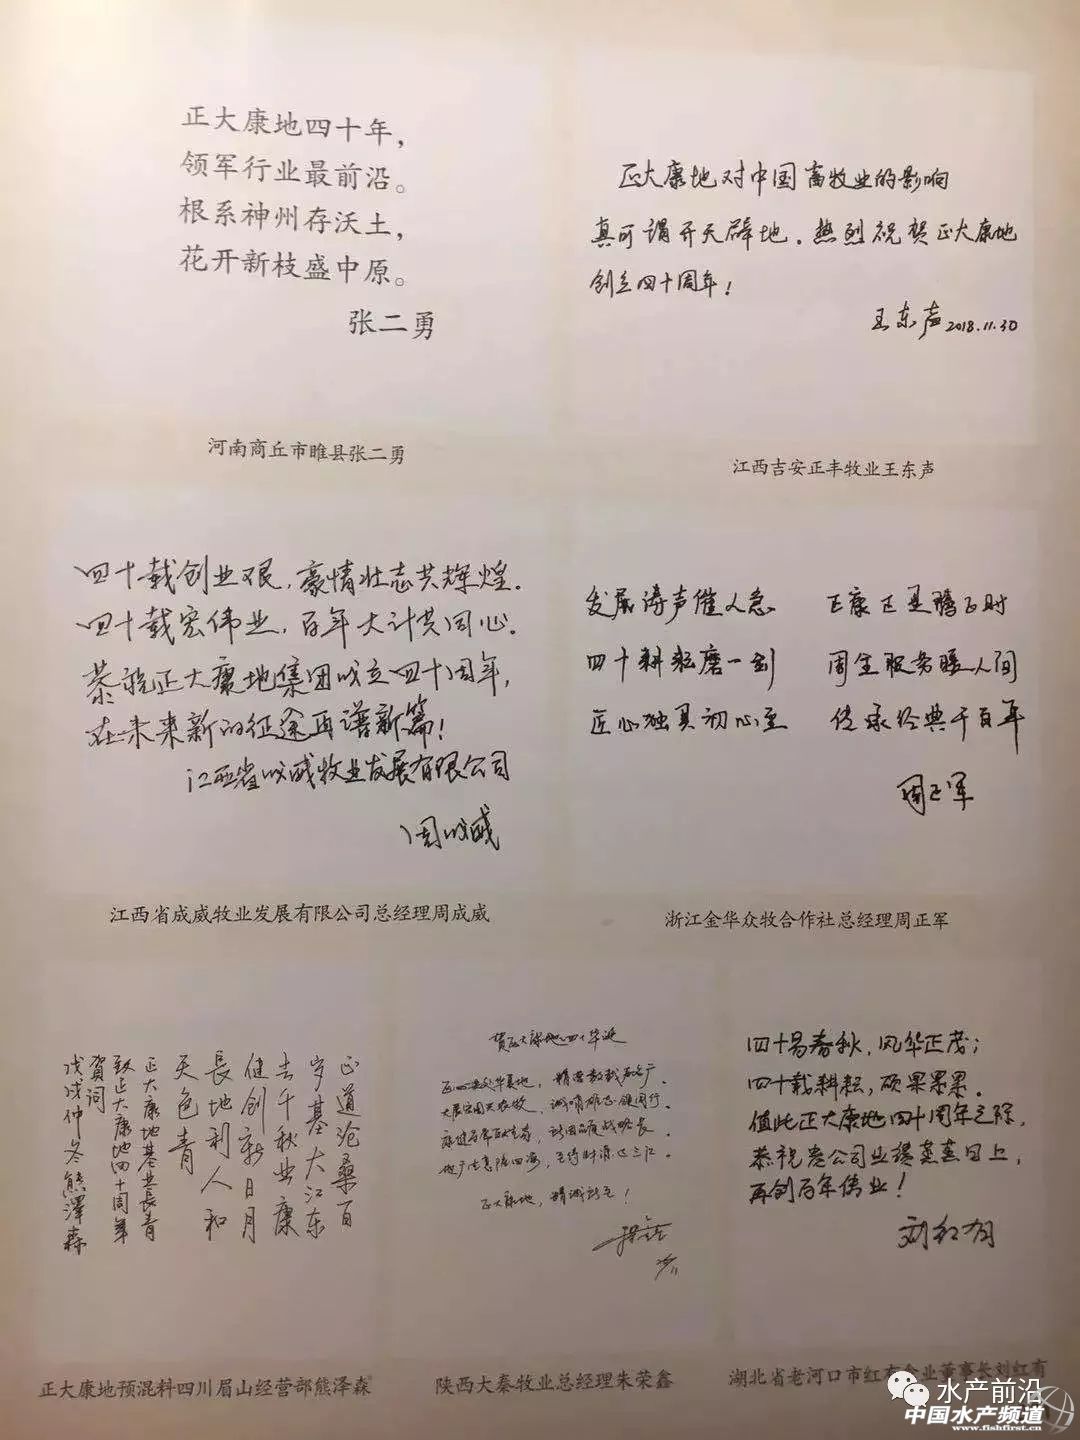 正大康地四十年，
领军行业最前沿。
根系神州存沃土，
花开新枝盛中原。
张二勇
河南商丘市睢县张二勇
正大康地对中国畜牧业的影响
真可谓开天辟地。热烈祝贺正大康地
创立四十周年！
王东声 2018.11.30
江西吉安正丰牧业王东声
四十载创业艰，豪情壮志共辉煌。
四十载宏伟业，百年大计共同心。
恭祝正大康地集团成立四十周年，
在未来新的征途再谱新篇！
江西省成威牧业发展有限公司
周成威
江西省成威牧业发展有限公司总经理周成威
发展涛声催人急 正康正是腾飞时
四十耕耘磨一剑 周全服务暖人间
匠心独具初心至 传承经典千百年
周正军
浙江金华众牧合作社总经理周正军
正道沧桑百
岁基大江东
去千秋业康
健创新日月
長地利人和
天色青
正大康地基业長青
致正大康地四十周年
賀词
戊戌仲冬熊澤森
正大康地预混料四川眉山经营部熊泽森
贺正大康地四十华诞
正大康地，精诚
陕西大秦牧业总经理朱荣鑫
四十易春秋，风华正茂；
四十载耕耘，硕果累累。
值此正大康地四十周年之际，
恭祝老公司业绩蒸蒸日上，
再创百年伟业！
刘红有
湖北省老河口市红有企业董事长刘红有
水产前沿
中国水产频道
www.fishfirst.cn